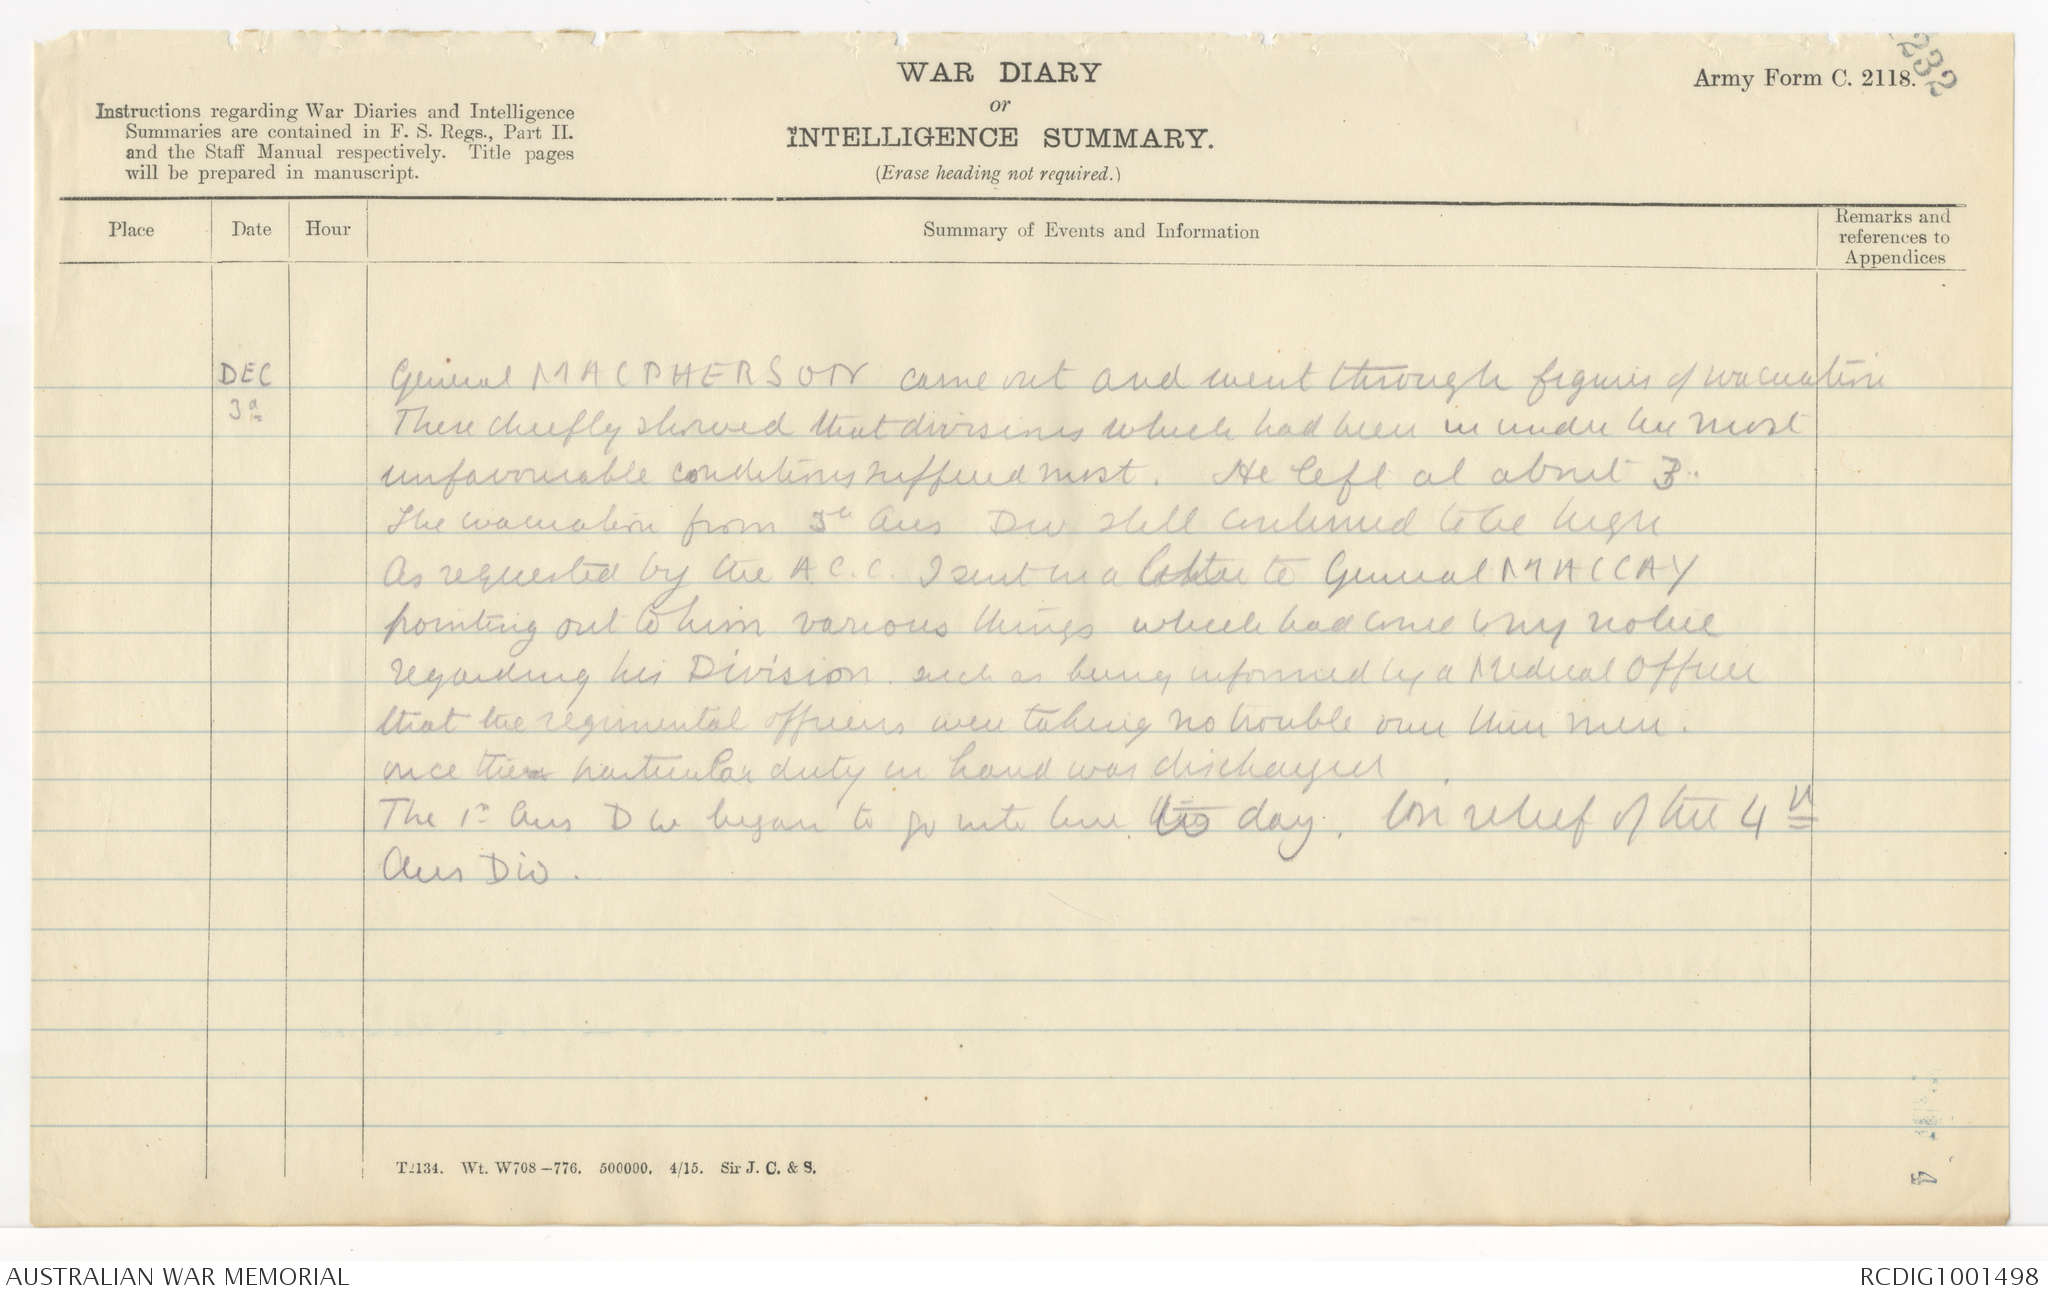 232
WAR DIARY
or
INTELLIGENCE SUMMARY.
(Erase heading not required.)
Army Form C. 2118.
Instructions regarding War Diaries and Intelligence
Summaries are contained in F. S. Regs., Part II.
and the Staff Manual respectively. Title pages
will be prepared in manuscript.
Place Date Hour Summary of Events and Information Remarks and references to Appendices
DEC
3
General MACPHERSON came out and went through figures of evacuation
These chiefly showed that divisions which had been in under the most
unfavourable conditions suffered most. He left at about 3.
The evacuation from 5th Aus Div still continued to be high
As requested by the A.C.C. I sent in a letter to General MACCAY
pointing out to him various things which had come to my notice
regarding his Division such as being informed by a Medical Officer
that the regimental officers were taking no trouble over their men.
once the particular duty in hand was discharged
The 1st Aus Div began to go into line to day. in relief of the 4th
Aus Div.
T2134. Wt. W708-776. 500000. 4/15. Sir J. C. & S.
AUSTRALIAN WAR MEMORIAL
RCDIG1001498